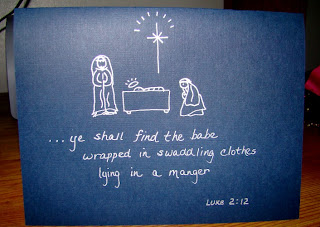 ...ye shall find the babe
wrapped in swaddling clothes
lying in a manger
Luke 2:12